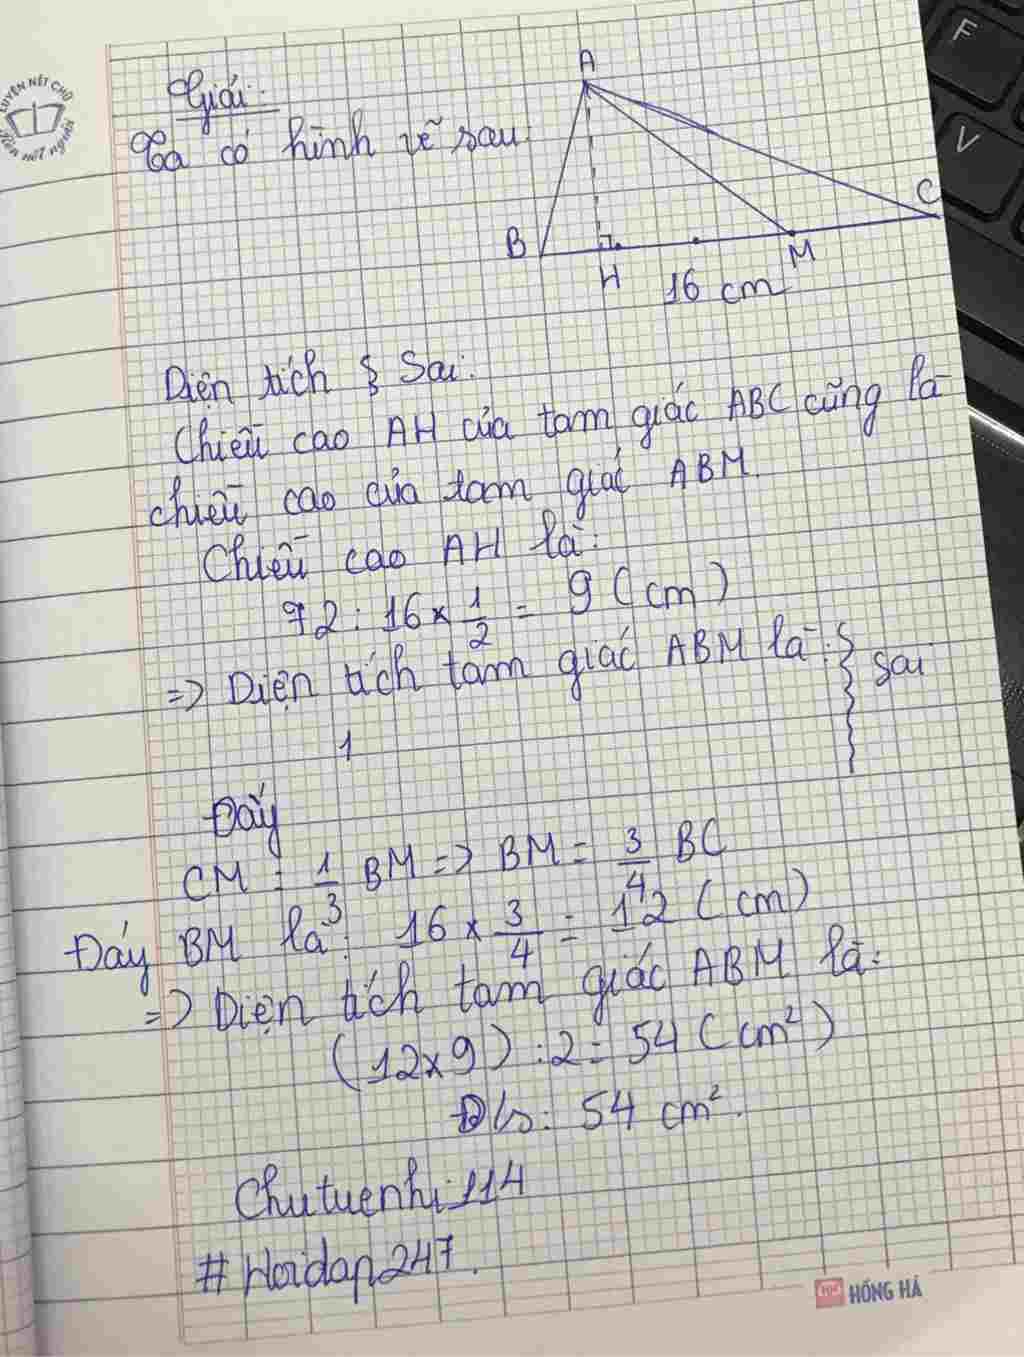 LUYỆN NẾT CHỮ
Rèn nết người
Giải:
Ta có hình vẽ sau
A
B
H
M
C
16 cm
Diện tích Sai:
Chiều cao AH của tam giác ABC cũng là
chiều cao của tam giác ABM.
Chiều cao AH là:
72 : 16 × 1/2 = 9 (cm)
=> Diện tích tam giác ABM là:
Sai
1
Đáy
CM = 1/3 BM => BM = 3/4 BC
Đáy BM là: 16 × 3/4 = 12 (cm)
=> Diện tích tam giác ABM là:
(12×9) : 2 = 54 (cm²)
Đ/s: 54 cm².
Chutuenhi114
#Hoidap247.
HỒNG HÀ
F
V